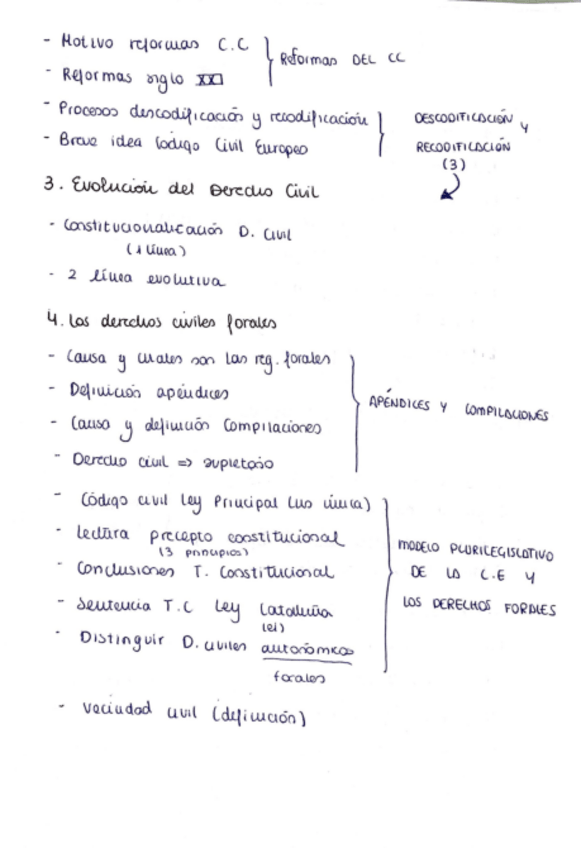 - Motivo reformas C.C
- Reformas siglo XXI
Reformas DEL CC
- Procesos descodificación y recodificación
- Breve idea Código Civil Europeo
DESCODIFICACIÓN y
RECODIFICACIÓN
(3)
3. Evolución del Derecho Civil
- Constitucionalización D. Civil
(1 línea)
- 2 línea evolutiva
4. Los derechos civiles forales
- Causa y cuales son las reg. forales
- Definición apéndices
- Causa y definición Compilaciones
- Derecho civil => supletorio
APÉNDICES Y COMPILACIONES
- Código civil Ley Principal (no única)
- Lectura precepto constitucional
(3 principios)
- Conclusiones T. Constitucional
- Sentencia T.C Ley Cataluña
(ei)
- Distinguir D. civiles autonómicos
forales
MODELO PLURILEGISLATIVO
DE LA C.E Y
LOS DERECHOS FORALES
- Vecindad civil (definición)